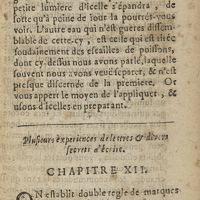 petite lumiere d'icelle s'épandra, de
sorte qu'à peine de jour la pourrés-vous
voir. L'autre eau qui n'est gueres dissem-
blable de cette-cy, est celle qui est tirée
soudainement des escailles de poissons,
dont cy-dessus nous avons parlé, laquelle
souvent nous avons veuë separer, & n'est
presque discernée de la premiere. Or
vous appert le moyen de l'appliquer, &
usons d'icelles en preparant.
Plusieurs experiences de lettres & divers
secrets d'écrire.
CHAPITRE XII.
ON establit double regle de marques